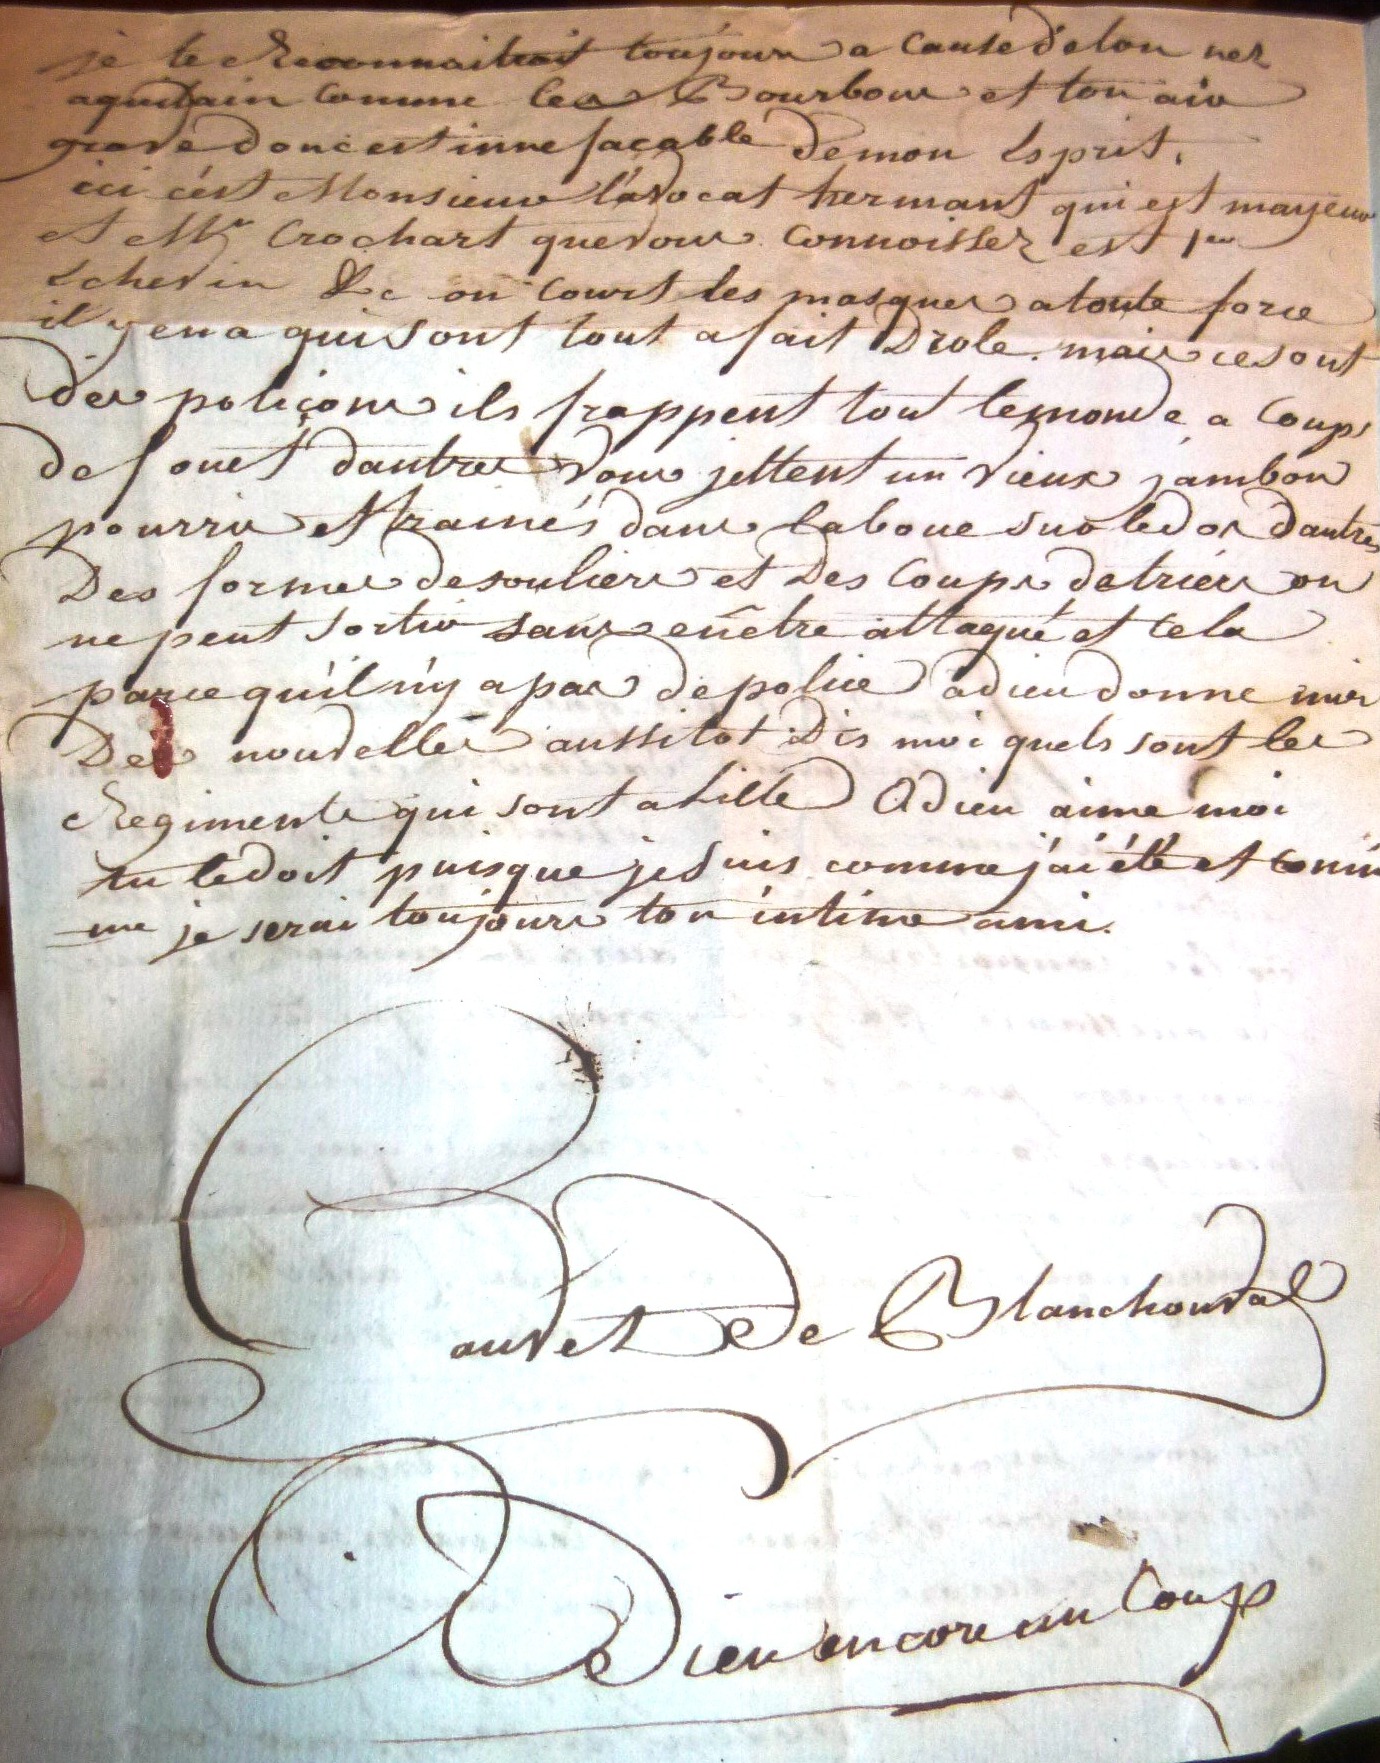 je te Reconnaitrait toujours a Cause de ton nez
aquilain Comme les Bourbons et ton air
grave donc est inne façable de mon Esprit.
ici c'est Monsieur l'avocat hermant qui est mayeur
et Mr Crochart que vous Connoissez est 1er
Echevin &c on Court les masques a toute force
il y en a qui sont tout a fait Drole. mais ce sont
des poliçons ils frappent tout le monde a Coups
de fouet dautres vous jettent un vieux jambon
pourris et trainés dans la boue sur le dos dautres
Des formes de souliers et Des Coups detriers on
ne peut sortir sans en être attaqué et Cela
parce qu'il n'y a pas de police adieu donne moi
Des nouvelles aussitot Dis moi quels sont les
Regiments qui sont a Lille Adieu aime moi
tu le doit puisque je suis comme j'ai été et comm
me je serai toujours ton intime ami.
Cauvet De Blanchonval
ADieu encore un Coup